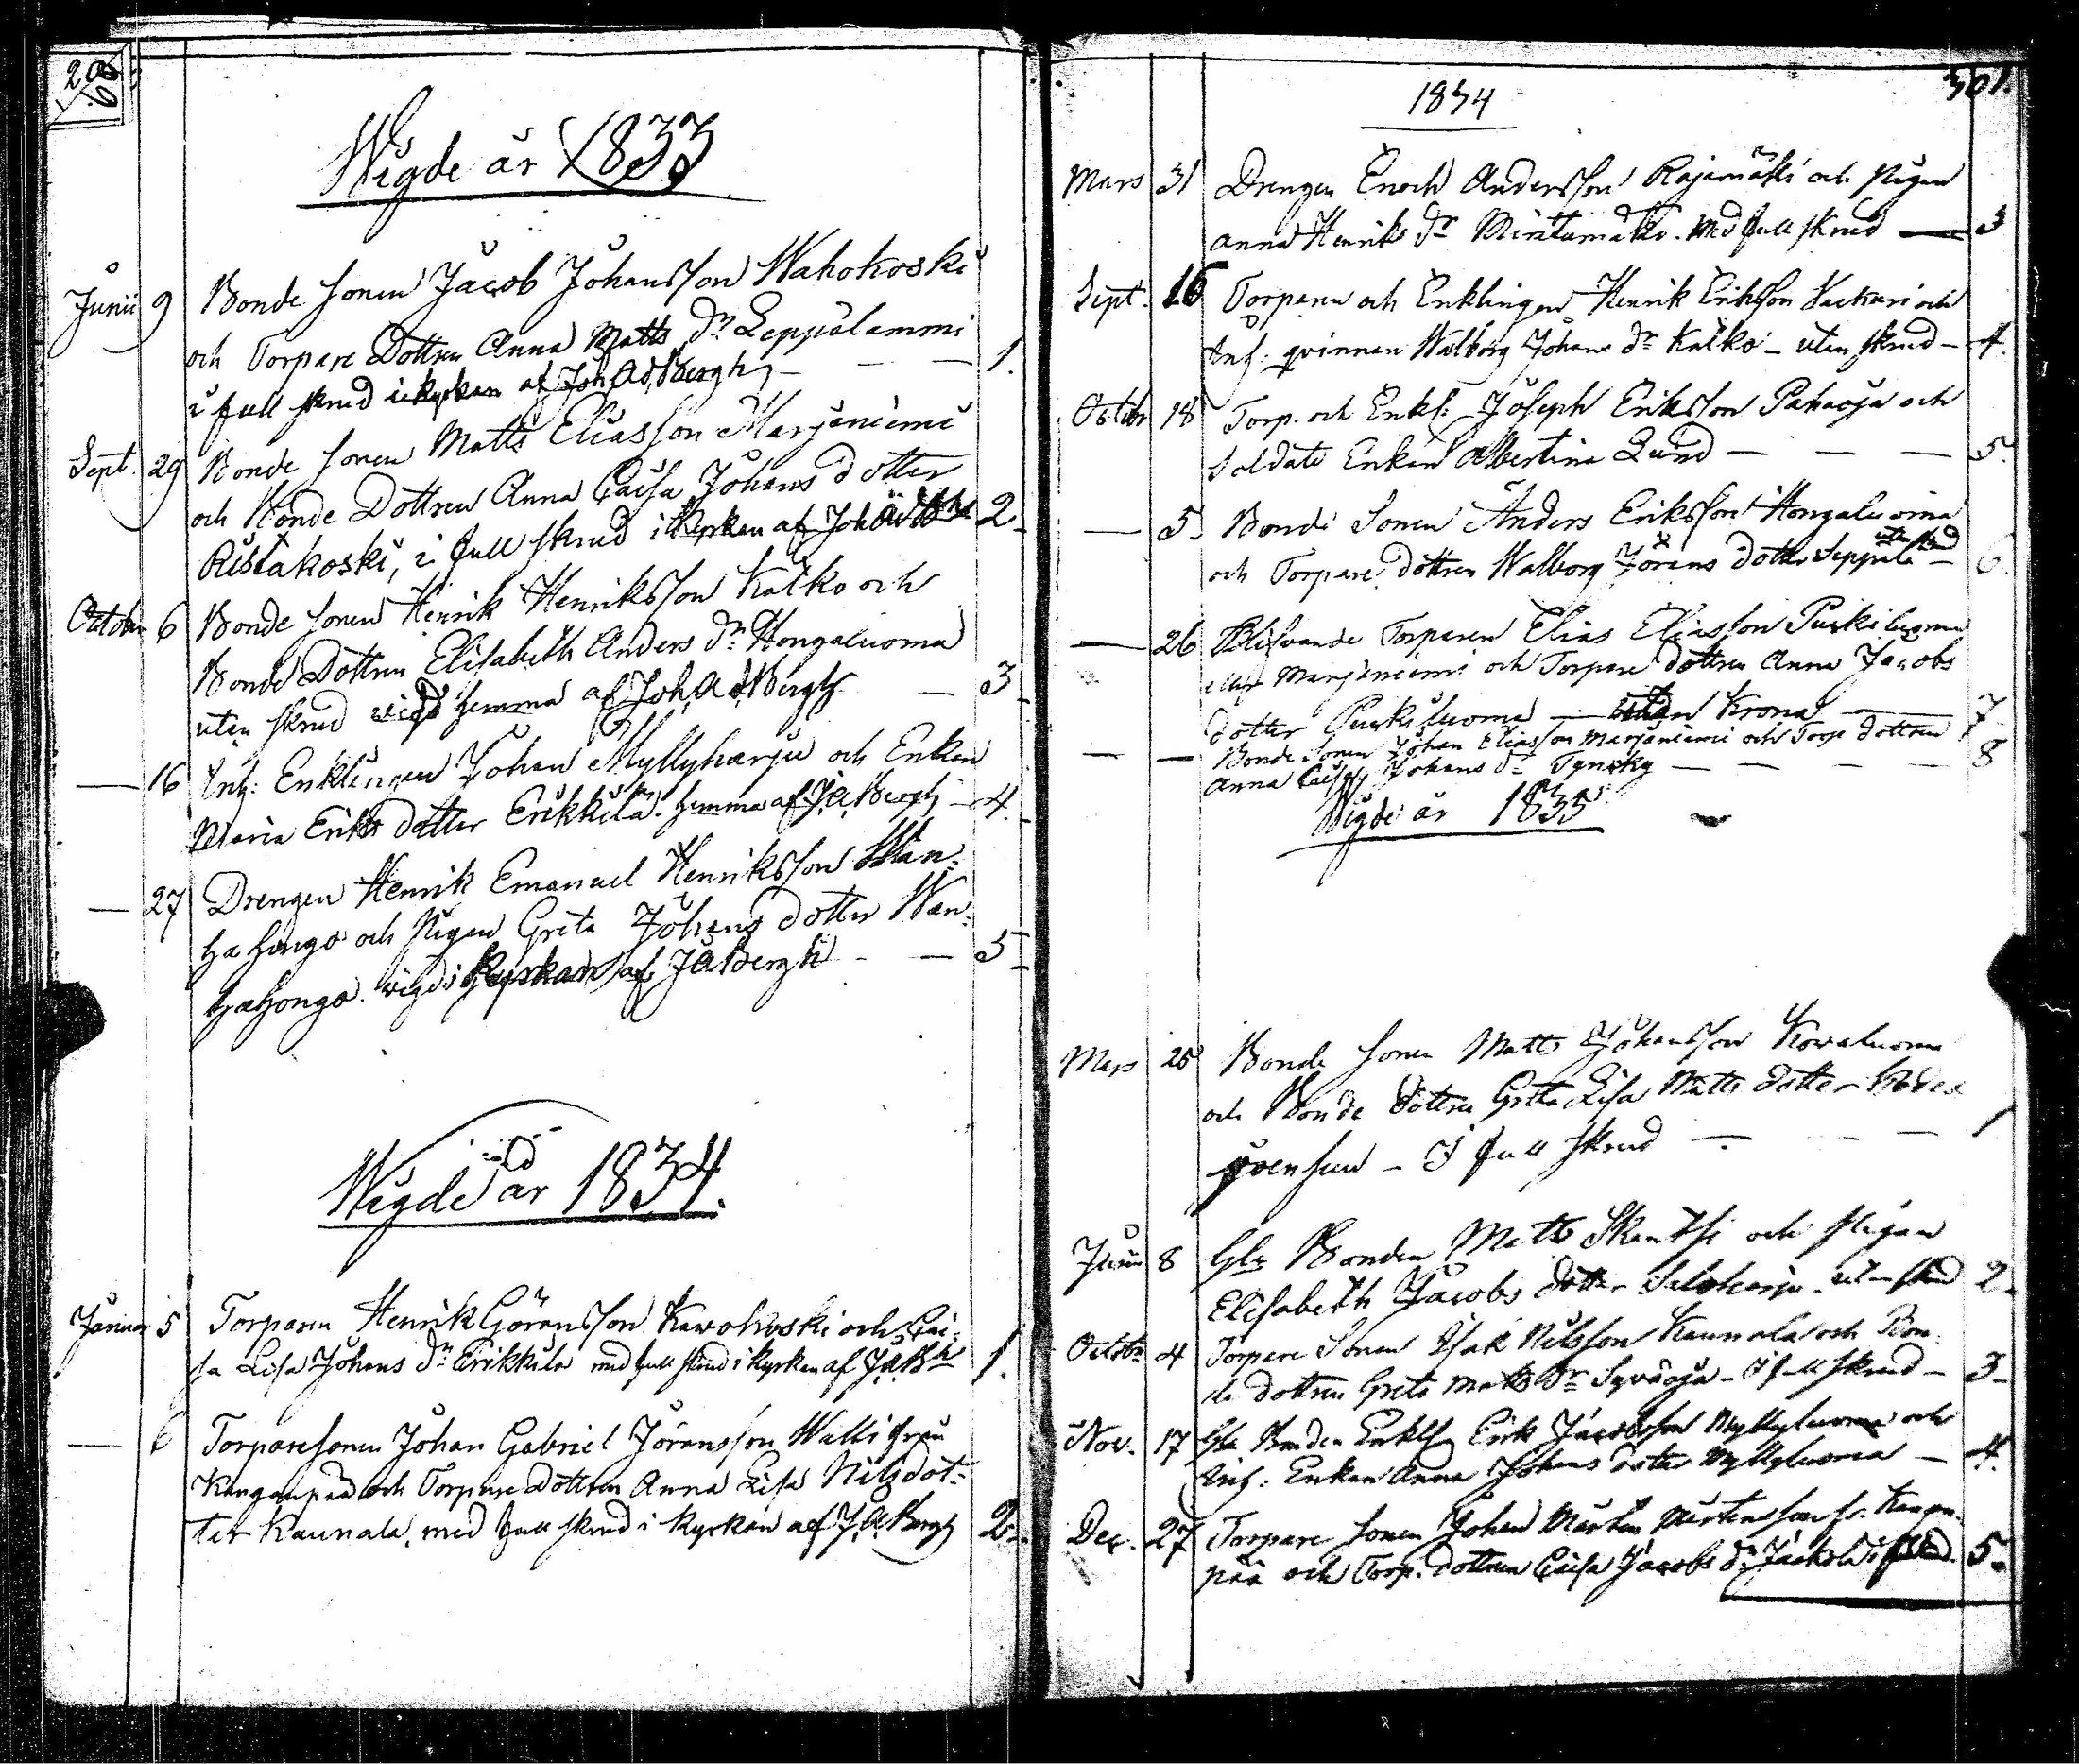 Wigde år 1833
Junii 9 Bonde sonen Jacob Johansson Wahokoski
och Torpare Dottren Anna Matts dr Leppälammi
i full skrud i kyrkan af Joh. Ad. Bergh — — 1.
Sept. 29 Bonde sonen Matts Eliasson Marjaniemi
och Bonde Dottren Anna Caisa Johans dotter
Ristakoski, i full skrud i kyrkan af Joh. 2
October 6 Bonde sonen Henrik Henriksson Kalko och
Bonde Dottren Elisabeth Anders dr Hongaluoma
uten skrud vigd hemma af Joh. Ad. Bergh — 3
— 16 Inh: Enklingen Johan Myllyharju och Enkan
Maria Eriks dotter Erikkilä. hemma af J. A. Bergh — 4.
— 27 Drengen Henrik Emanuel Henriksson Wan-
hahongo och Pigan Greta Johans dotter Wan-
hahongo. vigd i Kyrkan af J A Bergh — — 5
Wigde år 1834.
Januar 5 Torparen Henrik Göransson Karvokoski och Cai-
sa Lisa Johans dr Erikkilä med full skrud i kyrkan af J. A. Bh 1.
— 6 Torparesonen Johan Gabriel Jöransson Wallis från
Kanganpää och Torpare Dottren Anna Lisa Nilsdot-
ter Kaunala, med full skrud i kyrkan af J. A. Bergh 2.
301.
1834
Mars 31 Drengen Enoch Andersson Rajamäki och Pigan
Anna Henriks dr Mintumäki. Med full skrud — 3
Sept. 16 Torparen och Enklingen Henrik Eriksson och
Inh: qvinnan Walborg Johans dr Kalko — uten skrud — 4.
October 18 Torp. och Enkl: Joseph Eriksson Pahaoja och
Soldats Enkan Albertina Lund — — — 5.
— 5 Bonde Sonen Anders Eriksson Hongaluoma
och Torpare dottren Walborg Jörans dotter Seppälä uten skrud — 6
— 26 Blifvande Torparen Elias Eliasson Purkiluoma
eller Marjaniemi och Torpare dottren Anna Jacobs
dotter Purkiluoma — utan Krona — 7
— — Bonde Sonen Johan Eliasson Marjaniemi och Torp dottren
Anna Caisa Johans dr Tynsky — — — — 8
Wigde år 1835
Mars 25 Bonde sonen Matts Johansson Kowaluoma
och Bonde Dottren Greta Lisa Matts dotter
— I full skrud — — — 1
Junii 8 Gla Bonden Matts Skantsi och Pigan
Elisabeth Jacobs dotter Saloharju. utan skrud 2.
Octobr 4 Torpare Sonen Isak Nilsson Kaunala och Bon-
de dottren Greta Matts dr Syväoja — I full skrud — 3
Nov. 17 Gla Bonden Enkl Erik Jacobsson Myllyluoma och
Inh: Enkan Anna Johans dotter Myllyluoma — 4.
Dec. 27 Torpare sonen Johan Mårten Mårtensson fr. Kangan-
pää och Torp. dottren Caisa Jacobs dr Jäskelä i skrud. 5.